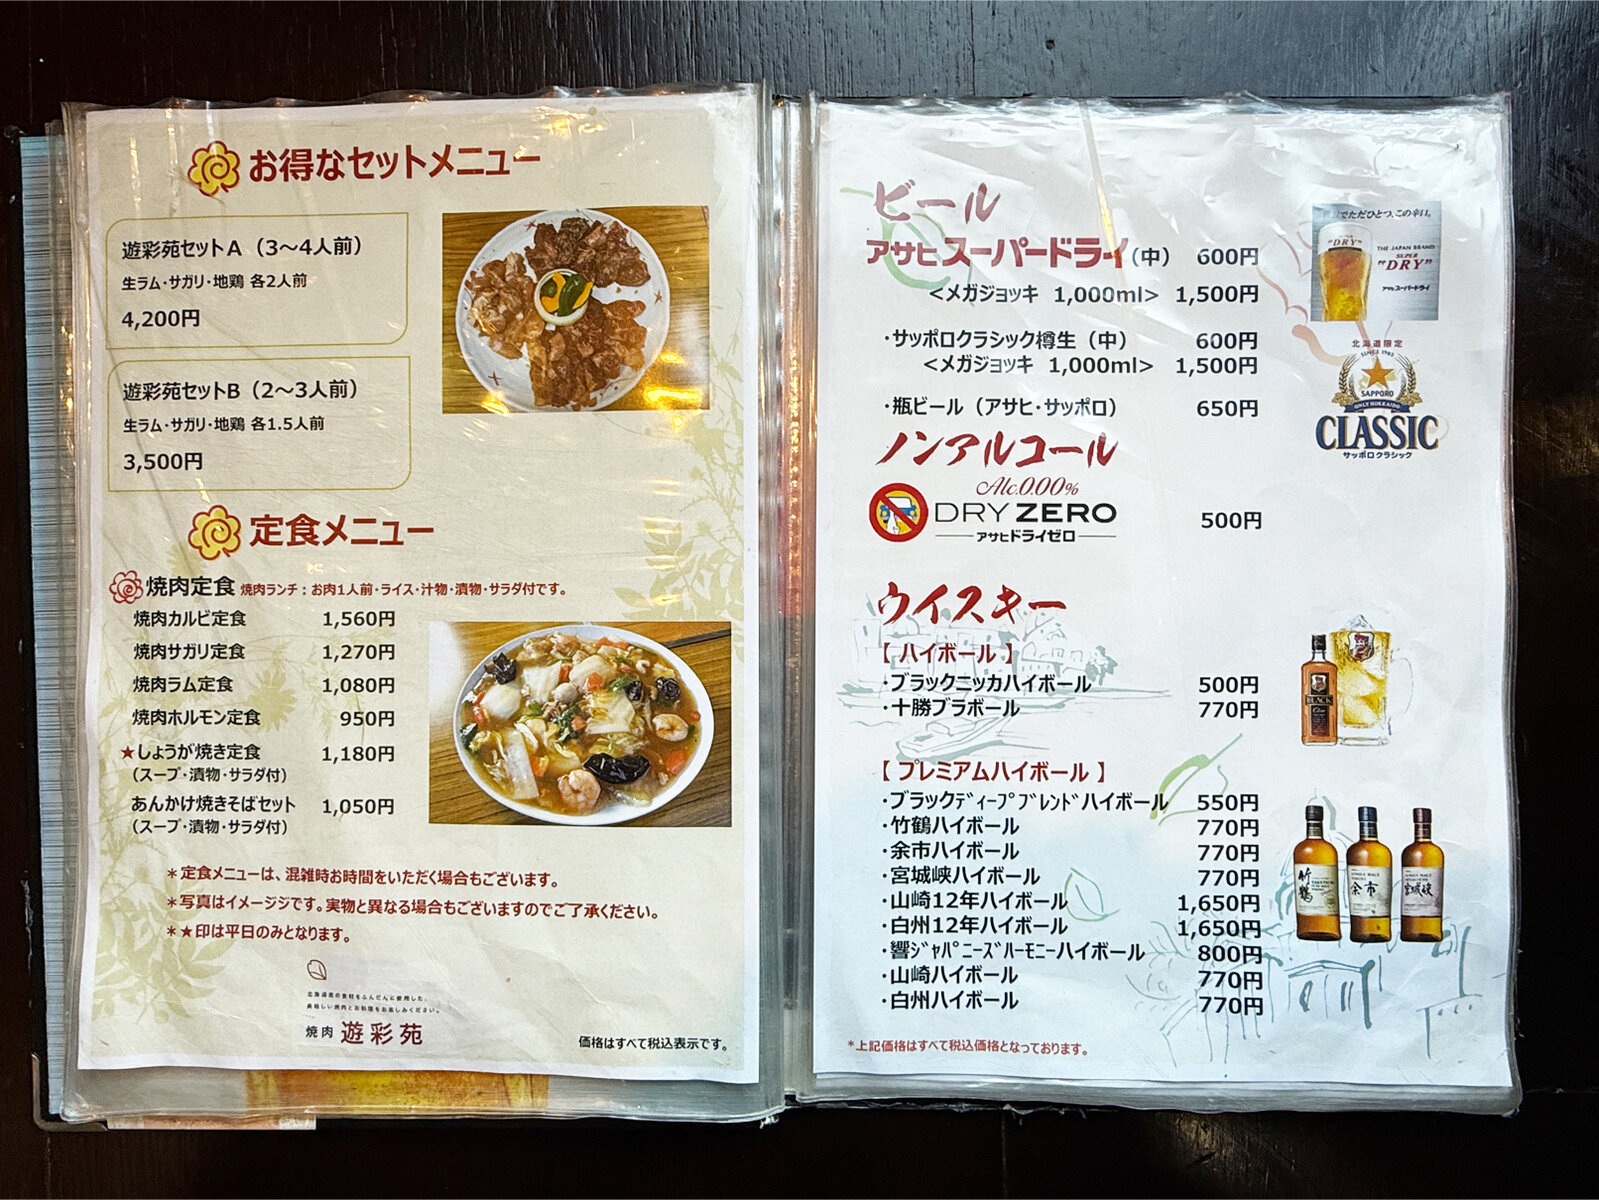 お得なセットメニュー
遊彩苑セットA（3〜4人前）
生ラム・サガリ・地鶏 各2人前
4,200円
遊彩苑セットB（2〜3人前）
生ラム・サガリ・地鶏 各1.5人前
3,500円
定食メニュー
焼肉定食 焼肉ランチ：お肉1人前・ライス・汁物・漬物・サラダ付です。
焼肉カルビ定食 1,560円
焼肉サガリ定食 1,270円
焼肉ラム定食 1,080円
焼肉ホルモン定食 950円
★しょうが焼き定食 1,180円
（スープ・漬物・サラダ付）
あんかけ焼きそばセット 1,050円
（スープ・漬物・サラダ付）
＊定食メニューは、混雑時お時間をいただく場合もございます。
＊写真はイメージジです。実物と異なる場合もございますのでご了承ください。
＊★印は平日のみとなります。
北海道産の食材をふんだんに使用した、
美味しい焼肉とお料理をお楽しみください。
焼肉 遊彩苑
価格はすべて税込表示です。
ビール
アサヒスーパードライ（中） 600円
＜メガジョッキ 1,000ml＞ 1,500円
・サッポロクラシック樽生（中） 600円
＜メガジョッキ 1,000ml＞ 1,500円
・瓶ビール（アサヒ・サッポロ） 650円
でただひとつ、この辛口。
SUPER
"DRY"
THE JAPAN BRAND
SUPER
"DRY"
アサヒスーパードライ
北海道限定
SINCE 1985
SAPPORO
ONLY HOKKAIDO
CLASSIC
サッポロクラシック
ノンアルコール
Alc.0.00%
DRY ZERO
アサヒドライゼロ
500円
ウイスキー
【 ハイボール 】
・ブラックニッカハイボール 500円
・十勝ブラボール 770円
BLACK
Clear
【 プレミアムハイボール 】
・ブラックﾃﾞｨｰﾌﾟﾌﾞﾚﾝﾄﾞハイボール 550円
・竹鶴ハイボール 770円
・余市ハイボール 770円
・宮城峡ハイボール 770円
・山崎12年ハイボール 1,650円
・白州12年ハイボール 1,650円
・響ｼﾞｬﾊﾟﾆｰｽﾞﾊｰﾓﾆｰハイボール 800円
・山崎ハイボール 770円
・白州ハイボール 770円
竹鶴
余市
宮城峡
＊上記価格はすべて税込価格となっております。